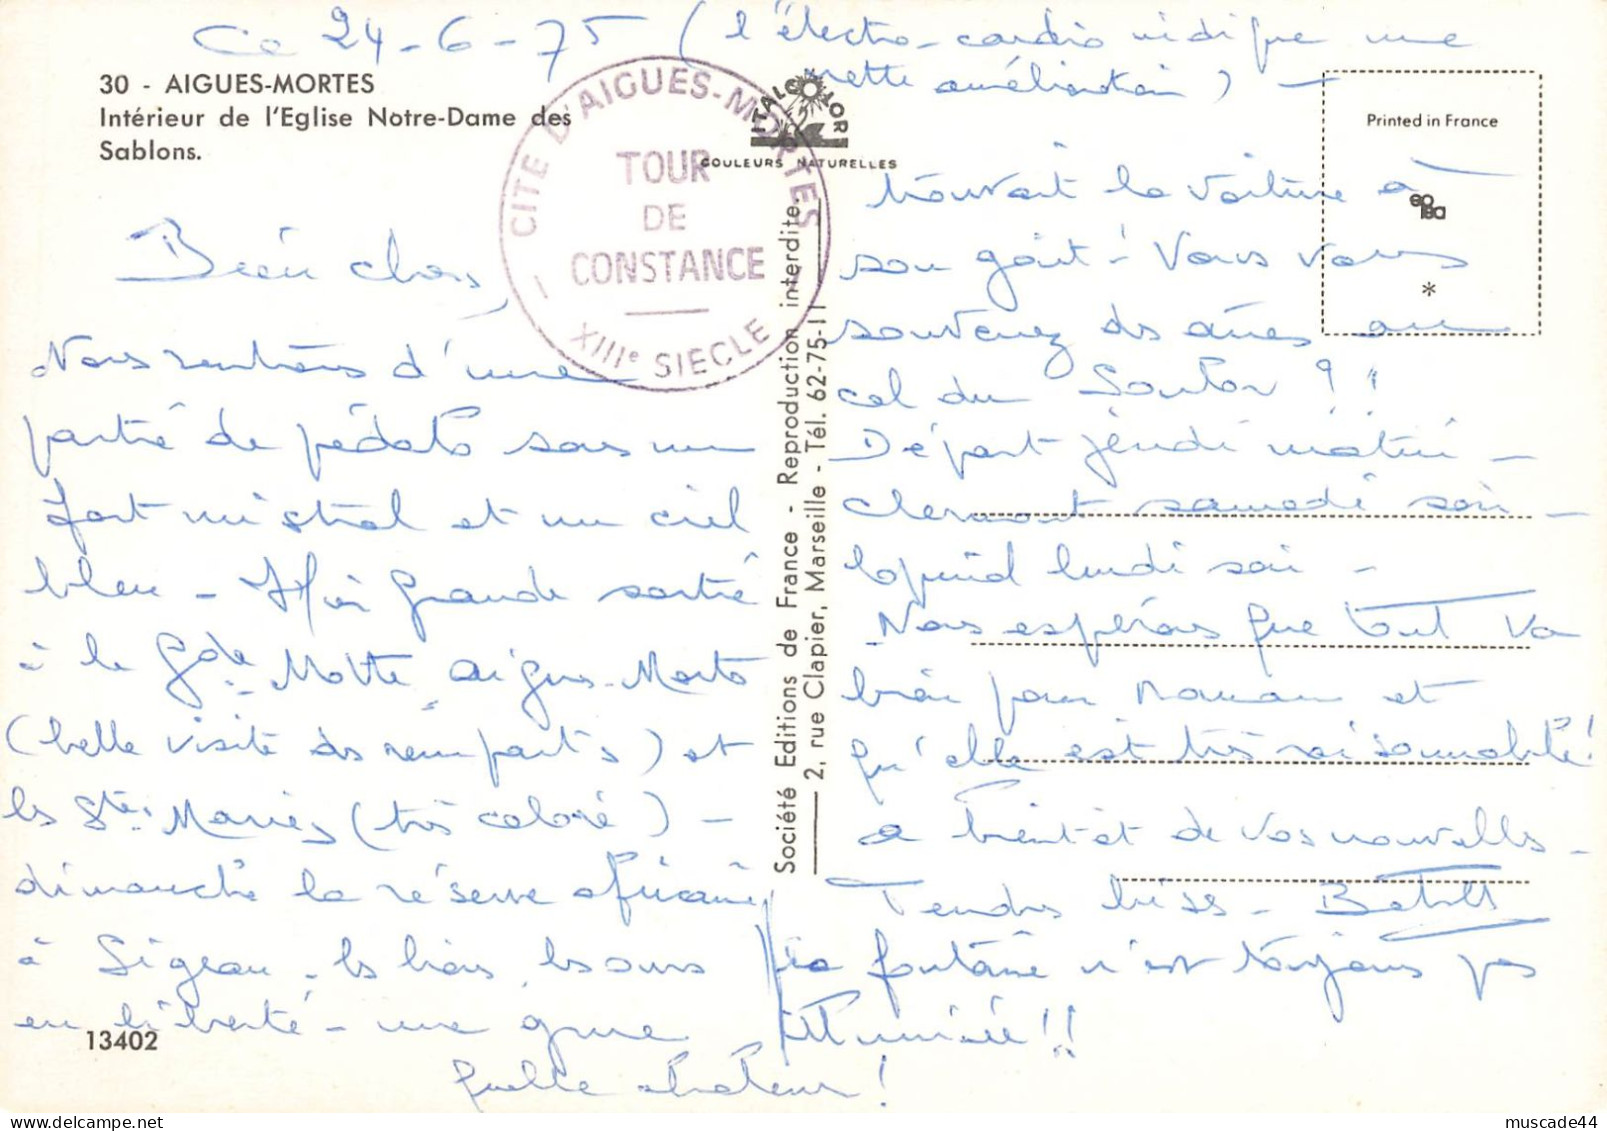 Ce 24-6-75 (l'électro-cardio indique une
nette amélioration) -
30 - AIGUES-MORTES
Intérieur de l'Eglise Notre-Dame des
Sablons.
CITE D'AIGUES-MORTES
TOUR
DE
CONSTANCE
XIIIe SIECLE
ITALCOLOR
COULEURS NATURELLES
Printed in France
*
Bien chers,
Nous rentrons d'une
partie de pédalo sous un
fort mistral et un ciel
bleu - Hier grande sortie
à la Gde Motte Aigues-Mortes
(belle visite des remparts) et
les Stes Maries (très coloré) -
dimanche la réserve africaine
à Sigean, les lions, les ours
en liberté - une grue
Société Editions de France - Reproduction interdite
2, rue Clapier, Marseille - Tél. 62-75-11
trouvait la voiture à
son goût! Vous vous
souvenez des ânes au
col du
Départ jeudi matin -
Clermont samedi soir -
lundi soir -
Nous espérons que tout va
bien pour Maman et
qu'elle est très raisonnable!
A bientôt de vos nouvelles -
Tendres bises -
la fontaine n'est toujours pas
illuminée!!
quelle chaleur!
13402
muscade44